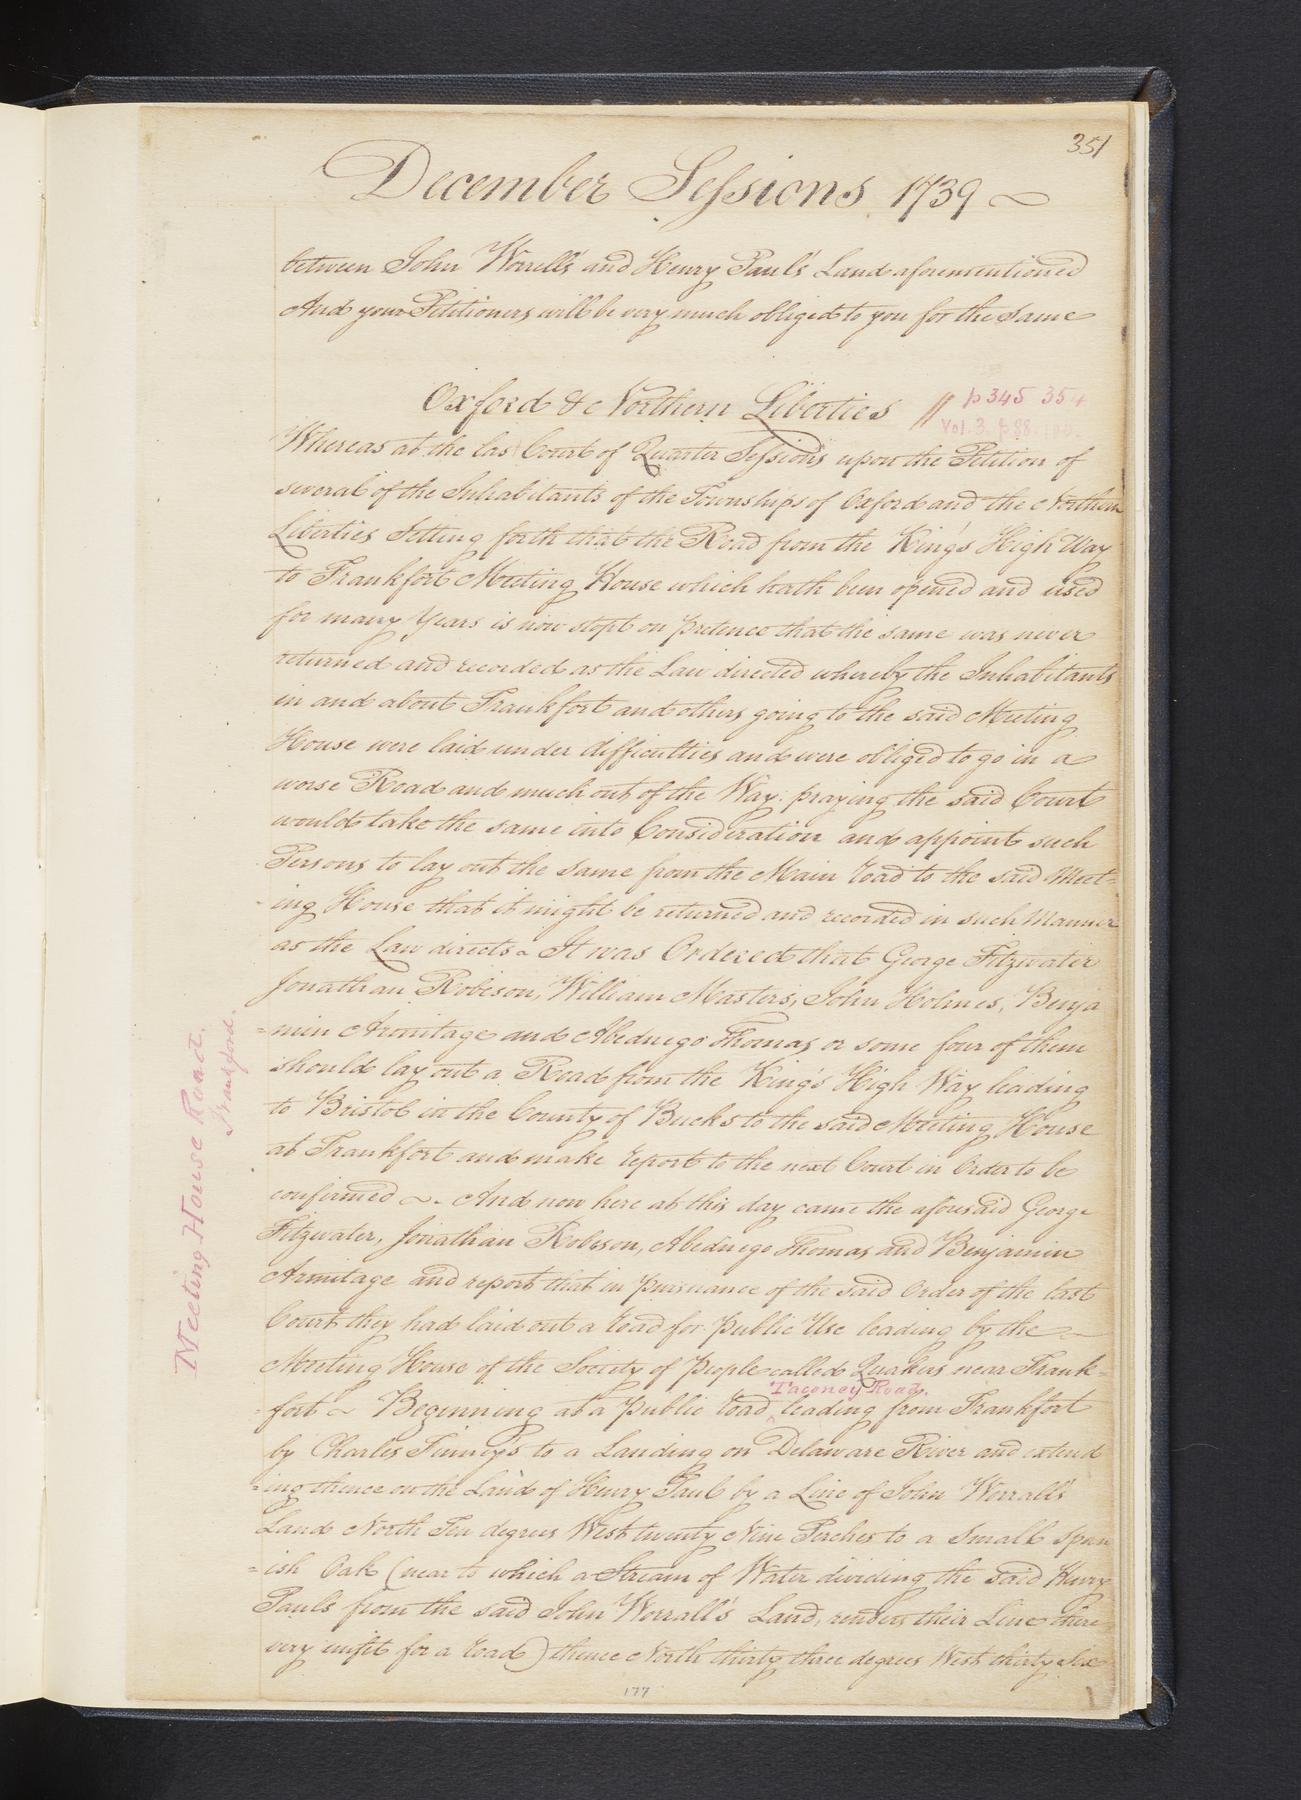 351
December Sessions 1739
between John Worrell's and Henry Paul's Land aforementioned
And your Petitioners will be very much obliged to you for the same
Oxford & Northern Liberties // p 345 354
Vol. 3. p 88.
Whereas at the las Court of Quarter Sessions upon the Petition of
several of the Inhabitants of the Townships of Oxford and the Northern
Liberties Setting forth that the Road from the King's High Way
to Frankfort Meeting House which hath been opened and used
for many Years is now stopt on pretence that the same was never
returned and recorded as the Law directed whereby the Inhabitants
in and about Frankfort and others going to the said Meeting
House were laid under difficulties and were obliged to go in a
worse Road and much out of the Way: praying the said Court
would take the same into Consideration and appoint such
Persons to lay out the same from the Main road to the said Meet-
-ing House that it might be returned and recorded in such Manner
as the Law directs ~ It was Ordered that George Fitzwater
Jonathan Robeson, William Masters, John Holmes, Benja
=min Armitage and Abednego Thomas or some four of them
should lay out a Road from the King's High Way leading
to Bristol in the County of Bucks to the said Meeting House
at Frankfort and make report to the next Court in Order to be
confirmed ~. And now here at this day came the aforesaid George
Fitzwater, Jonathan Robeson, Abednego Thomas and Benjamin
Armitage and report that in pursuance of the said Order of the last
Court they had laid out a road for public Use leading by the
Meeting House of the Society of People called Quakers near Frank-
Taconey Road.
-fort ~ Beginning at a public road ^ leading from Frankfort
by Charles Finney's to a Landing on Delaware River and extend
=ing thence on the Land of Henry Paul by a Line of John Worrall's
Land North Ten degrees West twenty Nine Perches to a small Span
=ish Oak (near to which a Stream of Water dividing the said Henry
Pauls from the said John Worrall's Land, renders their Line there
very unfit for a road) thence North thirty three degrees West thirty six
177
Meeting House Road.
Frankford.